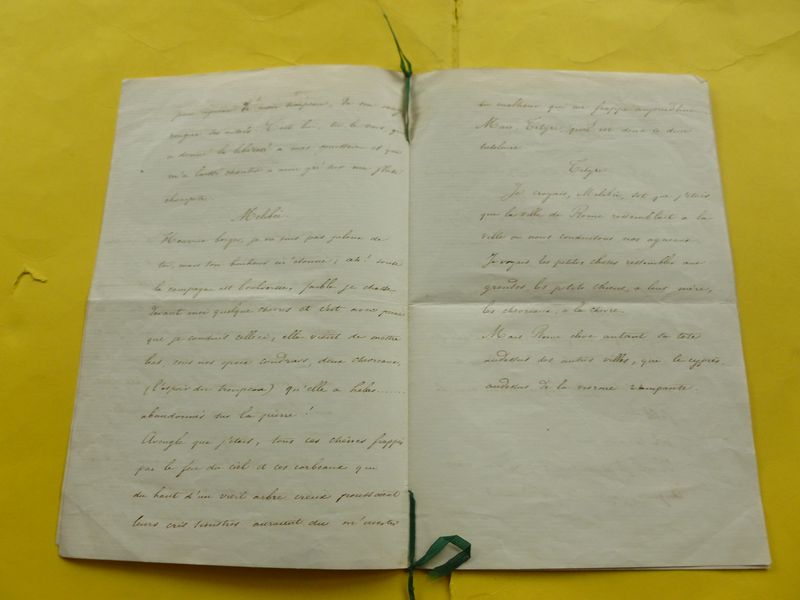 pour égarer de mon troupeau, de son sang
rougira ses autels. C'est lui, tu le vois qui
a donné la liberté a mes genisses et qui
m'a laissé chanter a mon gré sur ma flute
champetre
Melibée
Heureux berger, je ne suis pas jaloux de
toi, mais ton bonheur m'étonne; ah! toute
la campagne est bouleversée, faible je chasse
devant moi quelque chevres et c'est avec peine
que je conduis celle ci, elle vient de mettre
bas, sous ces epais coudriers, deux chevreaux,
(l'espoir du troupeau) qu'elle a hélas......
abandonnés sur la pierre!
Aveugle que j'etais, tous ces chênes frappés
par le feu du ciel et ces corbeaux qui
du haut d'un vieil arbre creux poussaient
leurs cris sinistres auraient du m'avertir
du malheur qui me frappe aujourd'hui
Mais, Tityre, quel est donc ce dieu
tutelaire
Tityre
Je croyais, Melibée, sot que j'etais
que la ville de Rome ressemblait a la
ville ou nous conduisons nos agneaux.
Je voyais les petites choses ressembler aux
grandes, les petits chiens, a leur mère,
les chevreaux, a la chevre.
Mais Rome eleve autant sa tete
audessus des autres villes, que le cyprès
audessus de la viorne rampante.